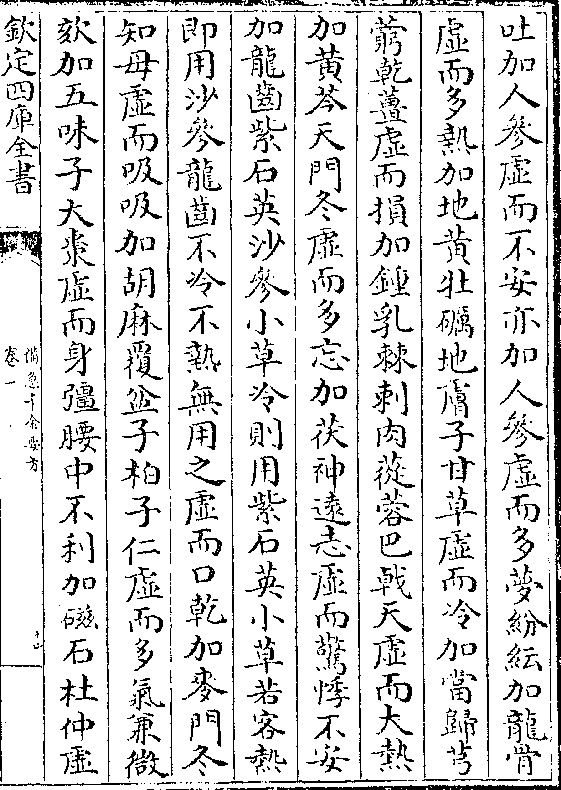 吐加人參虛而不安亦加人參虛而多夢紛紜加龍骨
虛而多熱加地黄牡礪地膚子甘草虛而冷加當歸芎
藭乾薑虛而損加鍾乳棘刺肉蓯蓉巴戟天虛而大熱
加黄芩天門冬虛而多忘加茯神遠志虛而驚悸不安
加龍齒紫石英沙參小草冷則用紫石英小草若客熱
即用沙參龍齒不冷不熱無用之虛而口乾加麥門冬
知母虛而吸吸加胡麻覆盆子柏子仁虛而多氣兼微
欬加五味子大棗虛而身彊腰中不利加磁石杜仲虛
欽定四庫全書
備急千金要方
卷一
十四